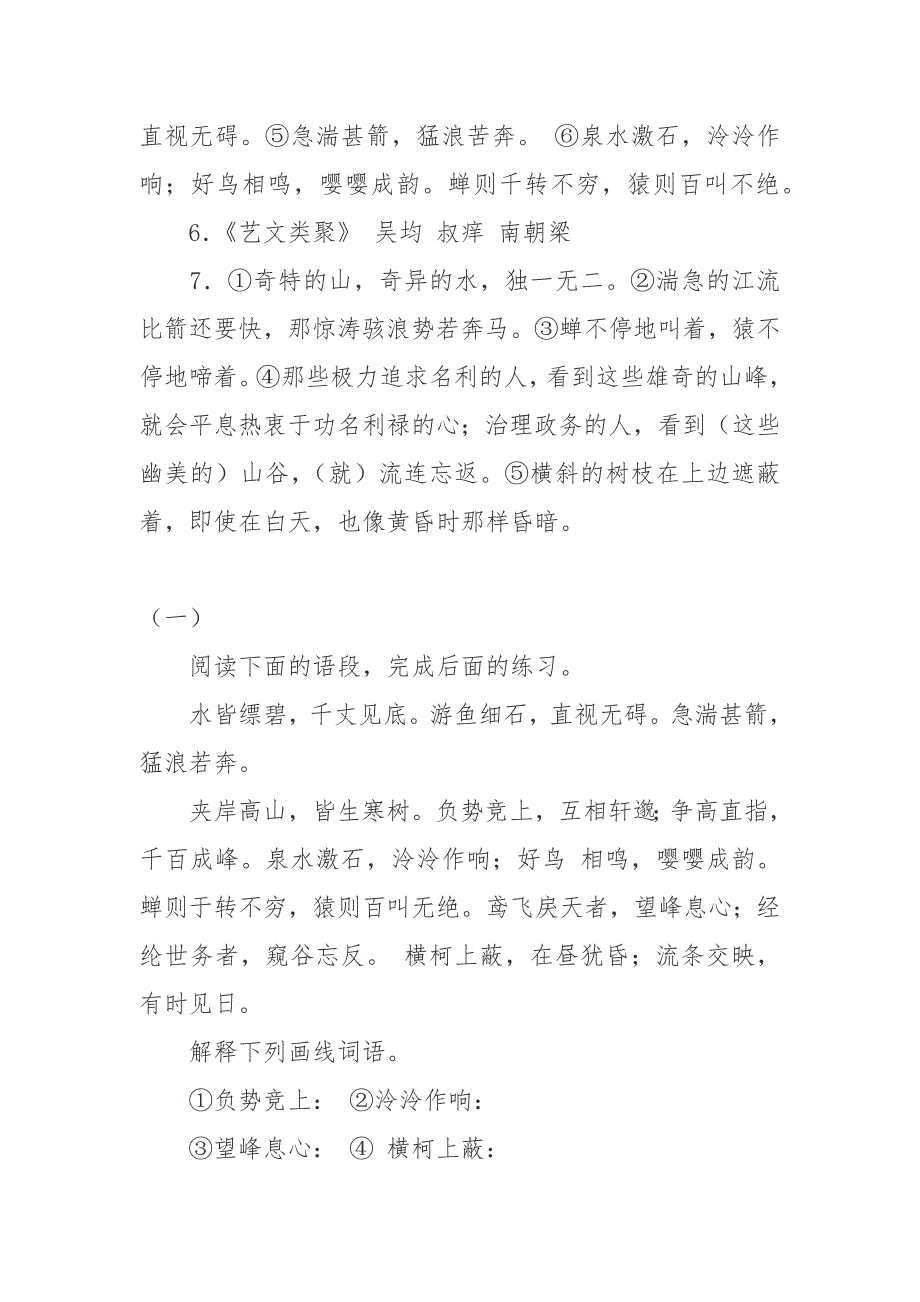 直视无碍。⑤急湍甚箭，猛浪苦奔。 ⑥泉水激石，泠泠作
响；好鸟相鸣，嘤嘤成韵。蝉则千转不穷，猿则百叫不绝。
6．《艺文类聚》 吴均 叔痒 南朝梁
7．①奇特的山，奇异的水，独一无二。②湍急的江流
比箭还要快，那惊涛骇浪势若奔马。③蝉不停地叫着，猿不
停地啼着。④那些极力追求名利的人，看到这些雄奇的山峰，
就会平息热衷于功名利禄的心；治理政务的人，看到（这些
幽美的）山谷，（就）流连忘返。⑤横斜的树枝在上边遮蔽
着，即使在白天，也像黄昏时那样昏暗。
（一）
阅读下面的语段，完成后面的练习。
水皆缥碧，千丈见底。游鱼细石，直视无碍。急湍甚箭，
猛浪若奔。
夹岸高山，皆生寒树。负势竞上，互相轩邈；争高直指，
千百成峰。泉水激石，泠泠作响；好鸟 相鸣，嘤嘤成韵。
蝉则于转不穷，猿则百叫无绝。鸢飞戾天者，望峰息心；经
纶世务者，窥谷忘反。 横柯上蔽，在昼犹昏；流条交映，
有时见日。
解释下列画线词语。
①负势竞上： ②泠泠作响：
③望峰息心： ④ 横柯上蔽：